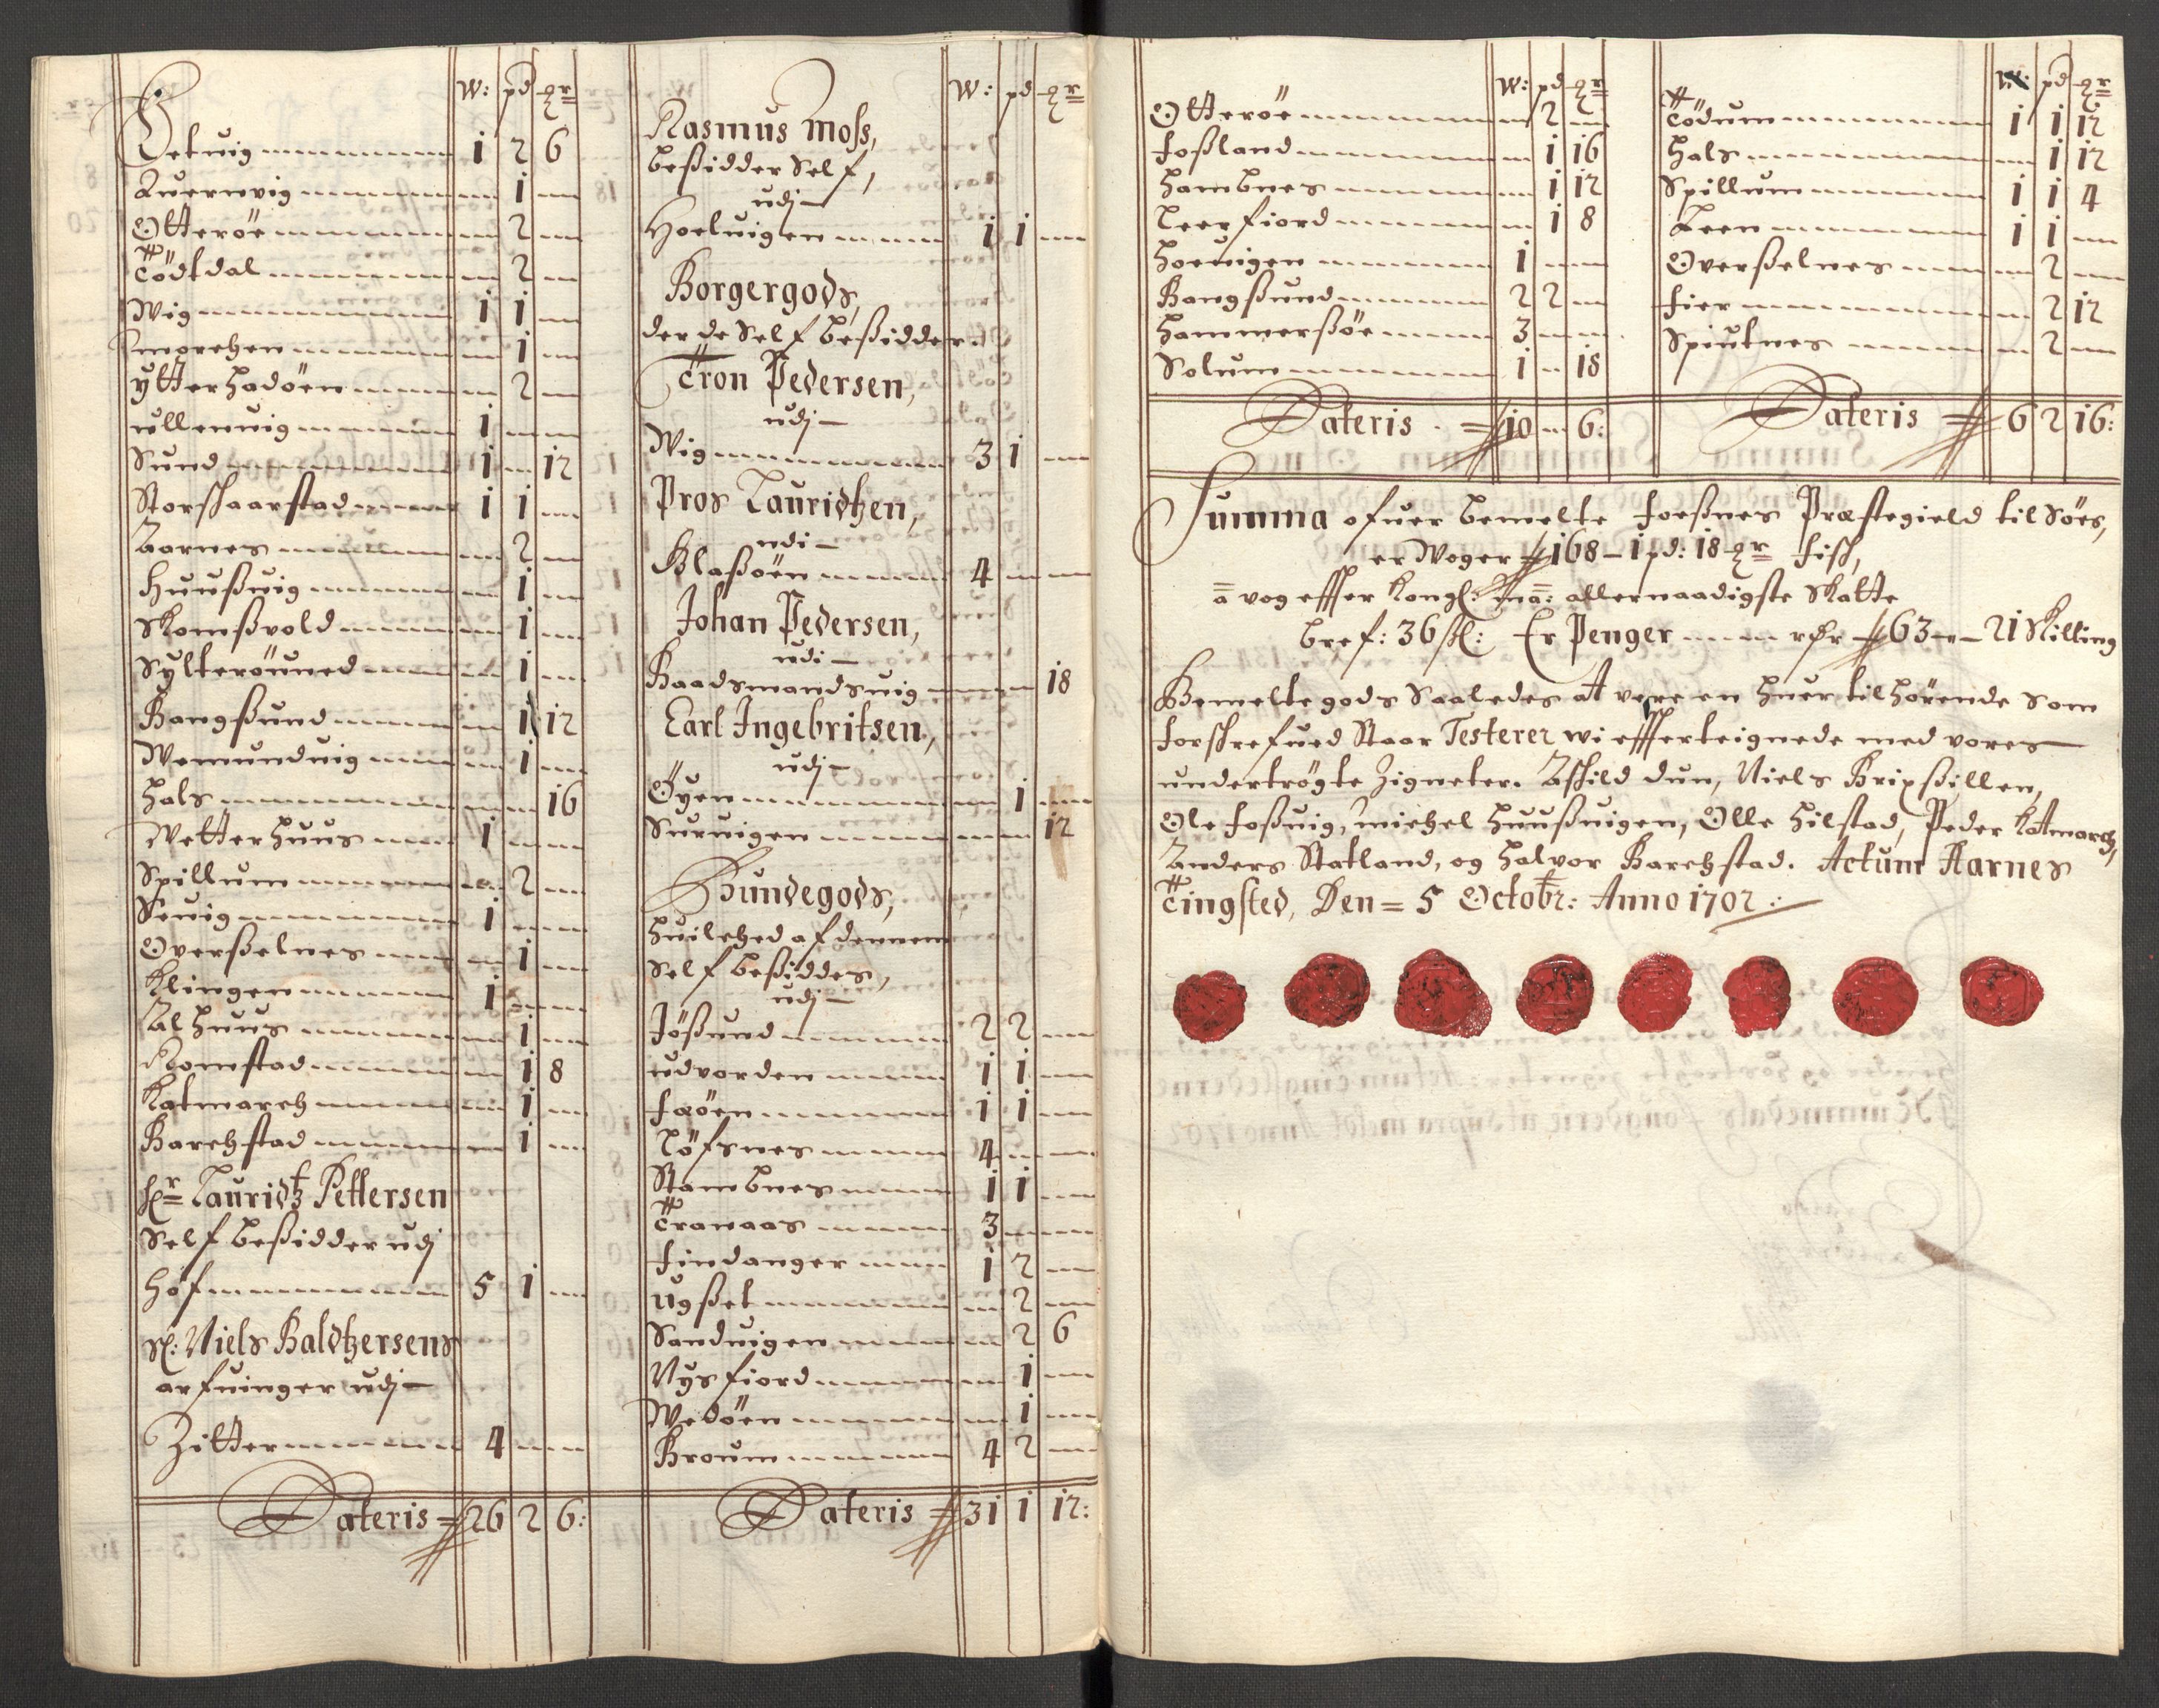 W: pd qr
Setuig 1 2 6
Quernvig 1
Otteröe 2
Tödtdal 2
Wig 1 1
Smorchen 1
ytterhadöen 2
ullenuig 1
Sund 1 12
Storskaarstad 1 1
Aarnes 2
Huusuig 1
Skomsvold 1
Sylteröuned 1
Bangsund 1 12
Wemunduig 1
Hals 16
Wetterhuus 1
Spillum 2
Seuig 1
Oversselnes 1
Klingen 1
Alhuus 1
Romstad 1 8
Katmarch 1
Barchstad 1
Hr Lauridtz Pettersen
Self besidder udj
Höf 5 1
Sl: Niels Baldtzersens
arfuinger udj
Zitter 4
Lateris 26 2 6:
W: pd qr
Rasmus Moss,
besidder Self,
udj
Hoeluigen 1 1
Borgergods,
der de Self besidder
Tron Pedersen,
udj
Wig 3 1
Pros Lauridtzen,
udi
Blasöen 4
Johan Pedersen,
udi
Baadsmandsuig 18
Carl Ingebritsen,
udj
Öyen 1
Suruigen 12
Bundegods,
Huilched af dennem
Self besiddes,
udj
Jösund 2 2
udvorden 1 1
Faöen 1 1
Löfsnes 4
Stambnes 1 1
Tranaas 3
Findanger 1 2
Ugset 2
Sanduigen 2 6
Nysfiord 1
Wedöen 1
Broum 4 2
Lateris 31 1 12:
W: pd qr
Otteröe 2
Fosland 1 16
Hambnes 1 12
Leerfiord 1 8
Hoeuigen 1
Bangsund 2 2
Hammersöe 3
Solum 1 18
Lateris 10 6:
W: pd qr
Tödum 1 1 12
Hals 1 12
Spillum 1 1 4
Leen 1 1
Oversselnes 2
Fier 2 12
Spiutnes 2
Lateris 6 2 16:
Summa ofuer bemelte Foesnes Præstegield til Söes,
er Woger 168 - 1 pd: 18 qr Fisk,
a vog effter Kongl: Ma: allernaadigste Skatte
bref: 36 sk: Er Penger rdr 63 - 21 Skilling
Bemelte gods Saaledes at vere en huer tilhörende som
forskrefued staar Testerer wi effterteignede med vores
undertrögte Zigneter. Askild Dun, Niels Bripsillen,
Ole Fosuig, Michel Huusuigen, Olle Hilstad, Peder Katmarch,
Anders Statland, og Halvor Barchstad. Actum Aarnes
Tingsted, Den = 5 Octobr: Anno 1702